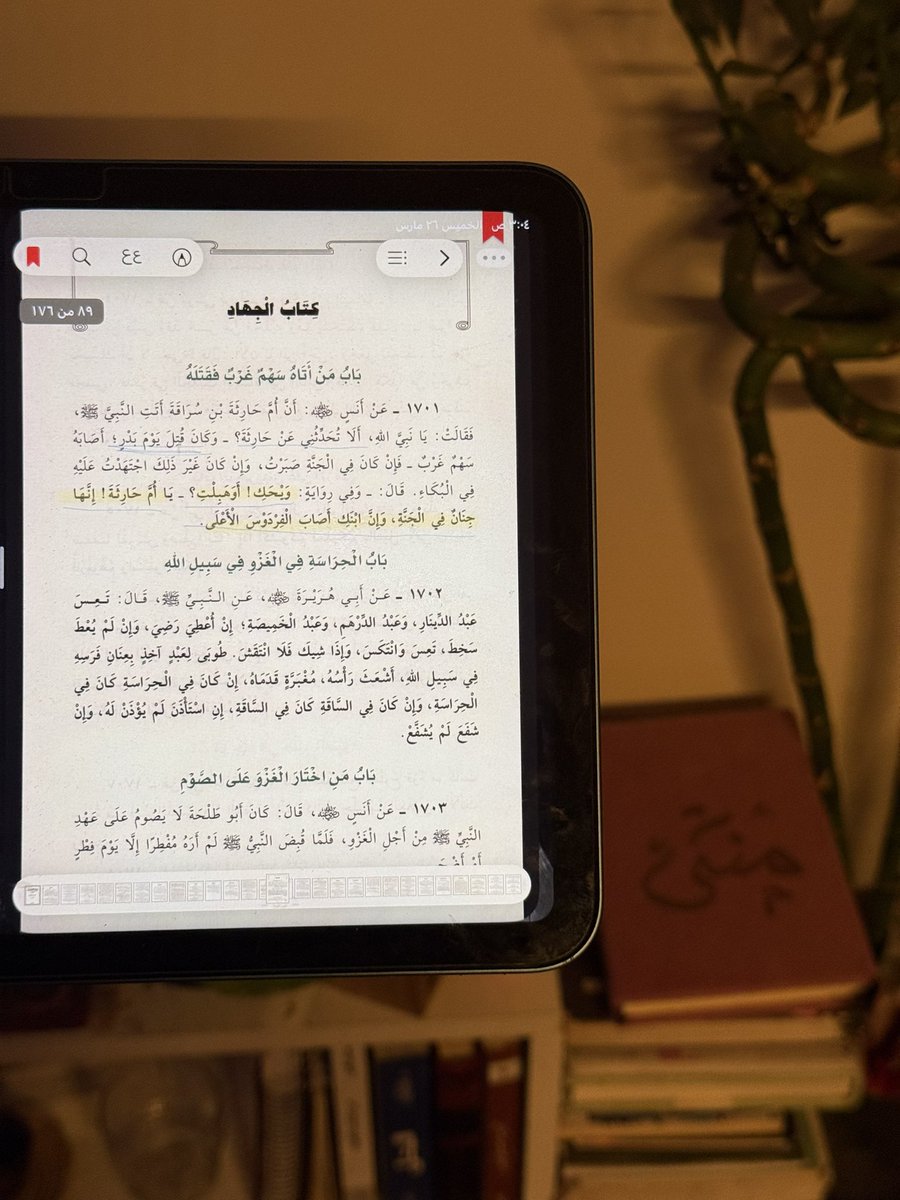 ٣:٠٤ ص الخميس ٢٦ مارس
ع ع
٨٩ من ١٧٦
كِتَابُ الْجِهَادِ
بَابُ مَنْ أَتَاهُ سَهْمٌ غَرْبٌ فَقَتَلَهُ
١٧٠١ ـ عَنْ أَنَسٍ ﵁: أَنَّ أُمَّ حَارِثَةَ بْنِ سُرَاقَةَ أَتَتِ النَّبِيَّ ﷺ،
فَقَالَتْ: يَا نَبِيَّ اللهِ، أَلَا تُحَدِّثُنِي عَنْ حَارِثَةَ؟ ـ وَكَانَ قُتِلَ يَوْمَ بَدْرٍ؛ أَصَابَهُ
سَهْمٌ غَرْبٌ ـ فَإِنْ كَانَ فِي الْجَنَّةِ صَبَرْتُ، وَإِنْ كَانَ غَيْرَ ذَلِكَ اجْتَهَدْتُ عَلَيْهِ
فِي الْبُكَاءِ. قَالَ: ـ وَفِي رِوَايَةٍ: وَيْحَكِ! أَوَهَبِلْتِ؟ ـ يَا أُمَّ حَارِثَةَ! إِنَّهَا
جِنَانٌ فِي الْجَنَّةِ، وَإِنَّ ابْنَكِ أَصَابَ الْفِرْدَوْسَ الْأَعْلَى.
بَابُ الْحِرَاسَةِ فِي الْغَزْوِ فِي سَبِيلِ اللهِ
١٧٠٢ ـ عَنْ أَبِي هُرَيْرَةَ ﵁، عَنِ النَّبِيِّ ﷺ، قَالَ: تَعِسَ
عَبْدُ الدِّينَارِ، وَعَبْدُ الدِّرْهَمِ، وَعَبْدُ الْخَمِيصَةِ؛ إِنْ أُعْطِيَ رَضِيَ، وَإِنْ لَمْ يُعْطَ
سَخِطَ، تَعِسَ وَانْتَكَسَ، وَإِذَا شِيكَ فَلَا انْتَقَشَ. طُوبَى لِعَبْدٍ آخِذٍ بِعِنَانِ فَرَسِهِ
فِي سَبِيلِ اللهِ، أَشْعَثَ رَأْسُهُ، مُغْبَرَّةٍ قَدَمَاهُ، إِنْ كَانَ فِي الْحِرَاسَةِ كَانَ فِي
الْحِرَاسَةِ، وَإِنْ كَانَ فِي السَّاقَةِ كَانَ فِي السَّاقَةِ، إِنِ اسْتَأْذَنَ لَمْ يُؤْذَنْ لَهُ، وَإِنْ
شَفَعَ لَمْ يُشَفَّعْ.
بَابُ مَنِ اخْتَارَ الْغَزْوَ عَلَى الصَّوْمِ
١٧٠٣ ـ عَنْ أَنَسٍ ﵁، قَالَ: كَانَ أَبُو طَلْحَةَ لَا يَصُومُ عَلَى عَهْدِ
النَّبِيِّ ﷺ مِنْ أَجْلِ الْغَزْوِ، فَلَمَّا قُبِضَ النَّبِيُّ ﷺ لَمْ أَرَهُ مُفْطِرًا إِلَّا يَوْمَ فِطْرٍ